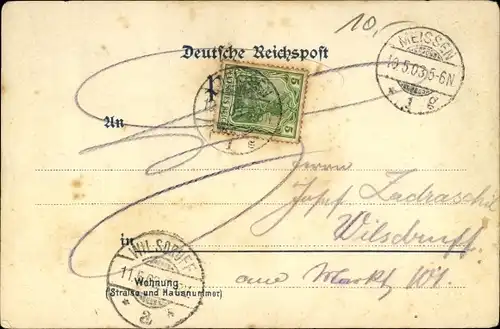 10.
Deutsche Reichspost
MEISSEN
10.5.03.5-6N
* 1 g
5
5
An
Herrn
Josef Zadraschil
in
Wilsdruff.
WILSDRUFF
11.5.03
* a *
am Markt 101.
Wohnung
(Straße und Hausnummer)